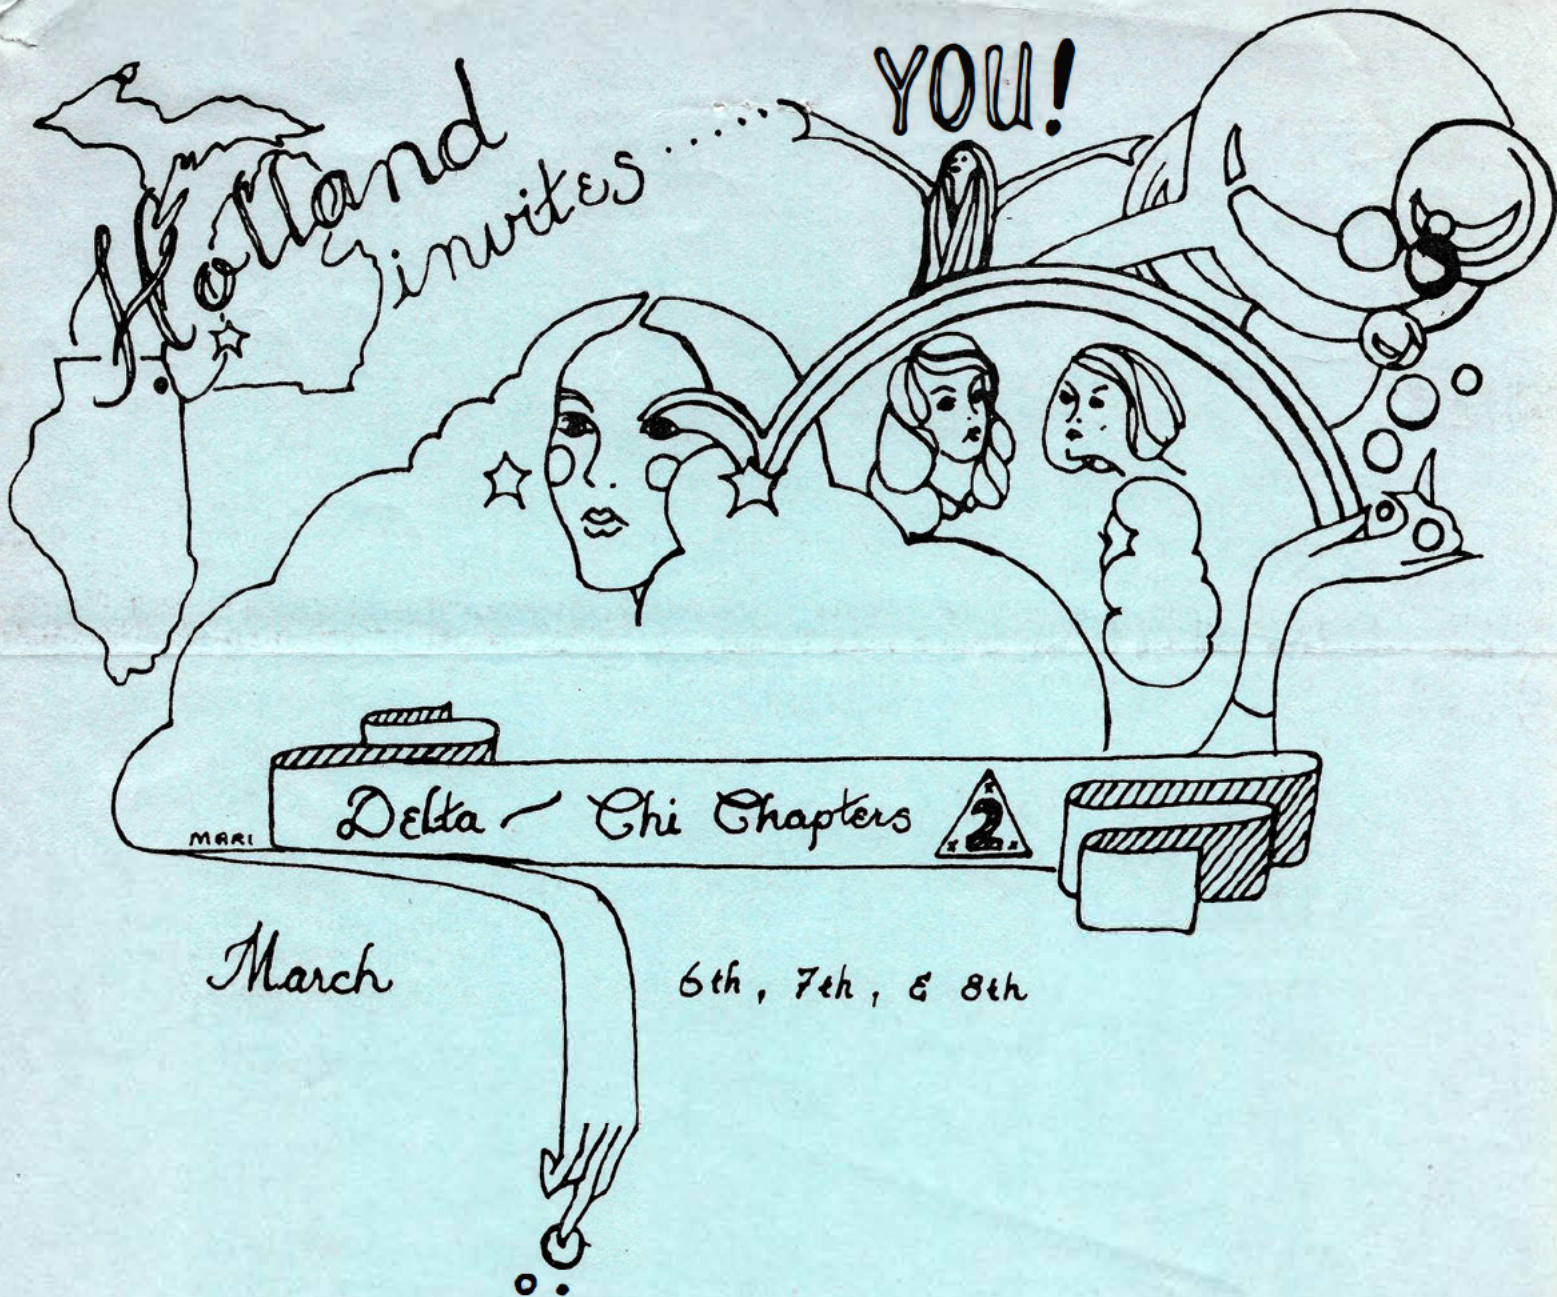 Holland
invites.......
YOU!
Delta - Chi Chapters 2
MARI
March 6th, 7th, & 8th